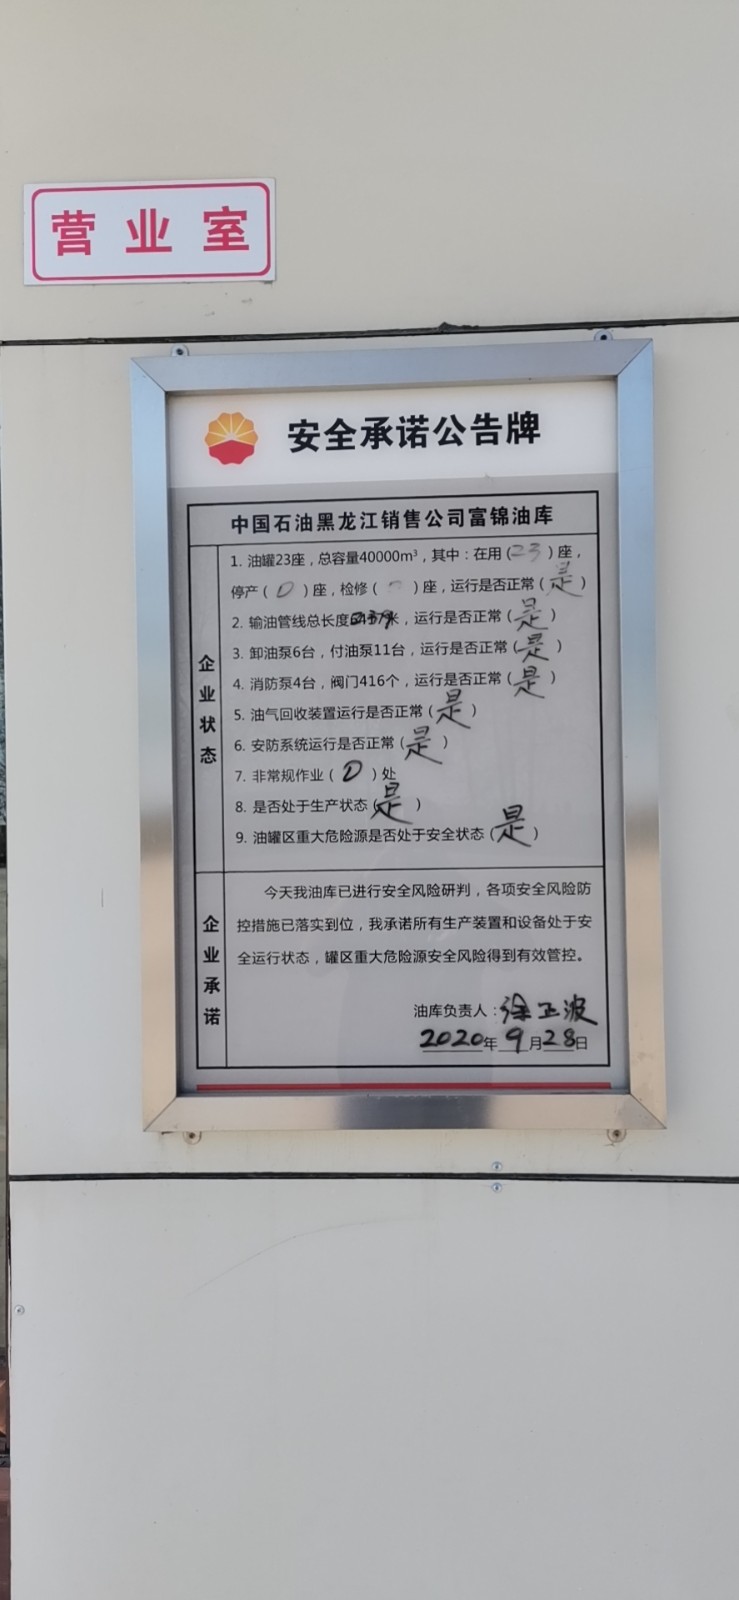 营业室
安全承诺公告牌
中国石油黑龙江销售公司富锦油库
企业状态
1. 油罐23座，总容量40000m³，其中：在用(23)座，
停产（0）座，检修（0）座，运行是否正常（是）
2. 输油管线总长度米，运行是否正常（是）
3. 卸油泵6台，付油泵11台，运行是否正常（是）
4. 消防泵4台，阀门416个，运行是否正常（是）
5. 油气回收装置运行是否正常（是）
6. 安防系统运行是否正常（是）
7. 非常规作业（0）处
8. 是否处于生产状态（是）
9. 油罐区重大危险源是否处于安全状态（是）
企业承诺
今天我油库已进行安全风险研判，各项安全风险防
控措施已落实到位，我承诺所有生产装置和设备处于安
全运行状态，罐区重大危险源安全风险得到有效管控。
油库负责人：徐正波
2020年9月28日